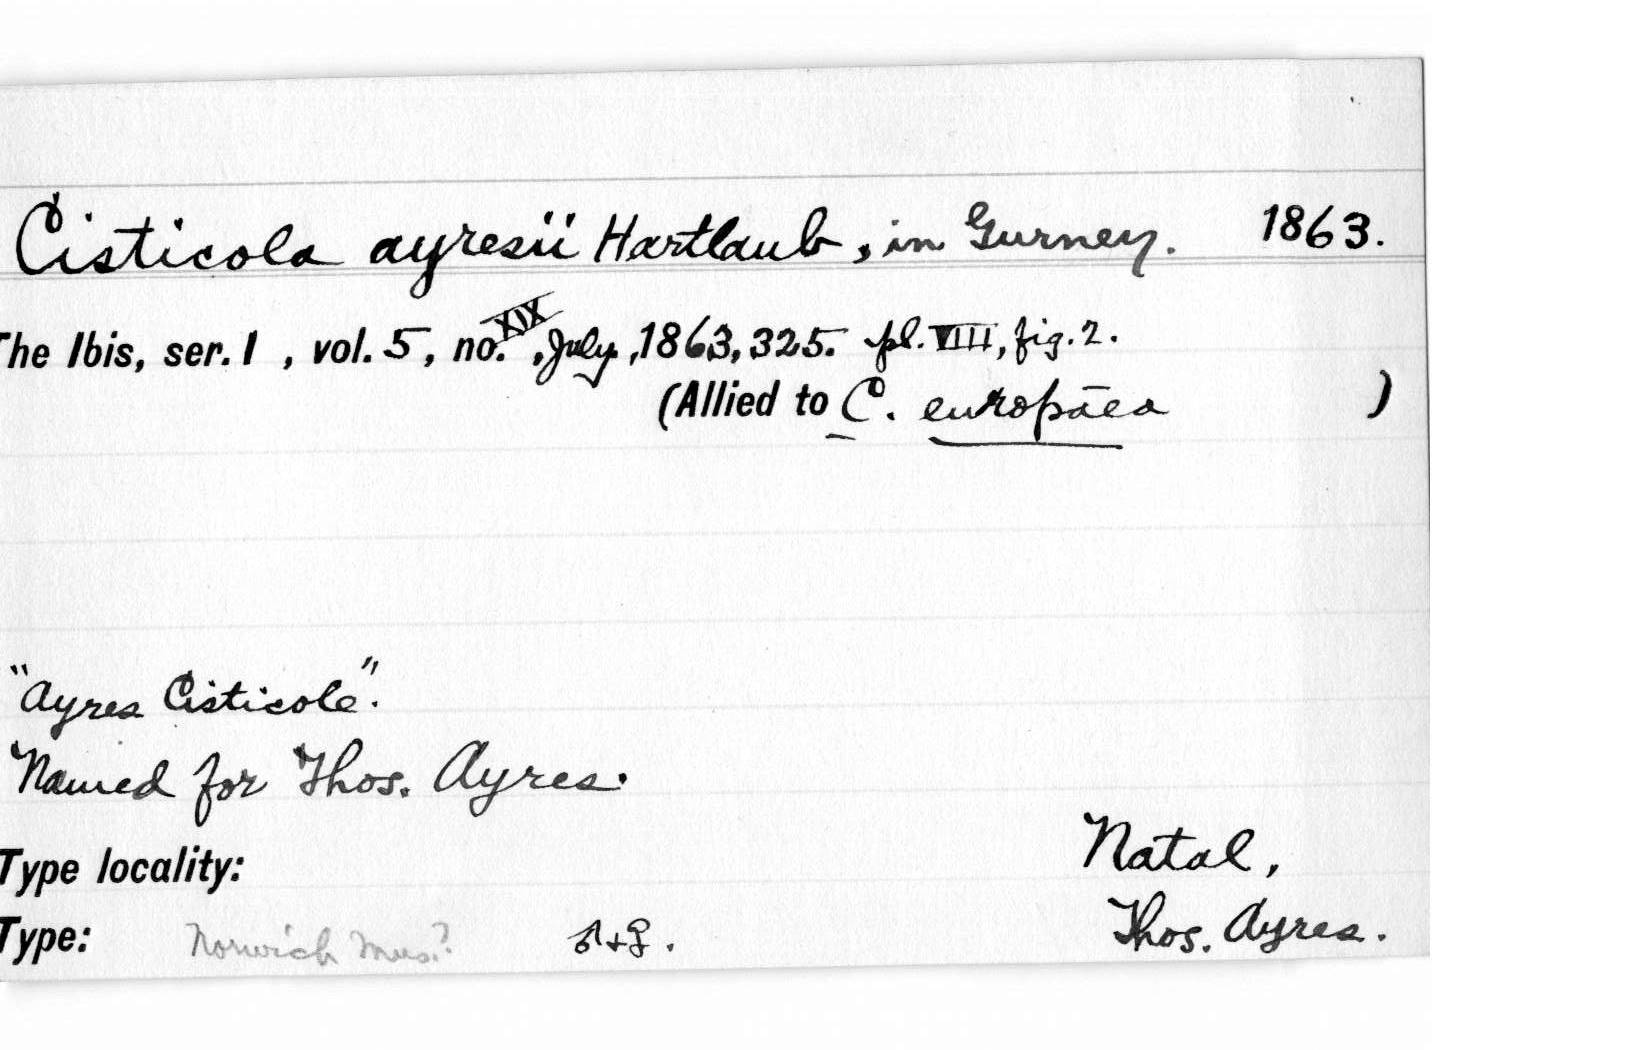 Cisticola ayresii Hartlaub, in Gurney. 1863.
The Ibis, ser. 1, vol. 5, no. XIX, July, 1863, 325. pl. VIII, fig. 2.
(Allied to C. europæa )
"Ayres Cisticole".
Named for Thos. Ayres.
Type locality: Natal,
Type: Norwich Mus.? ♂+♀. Thos. Ayres.